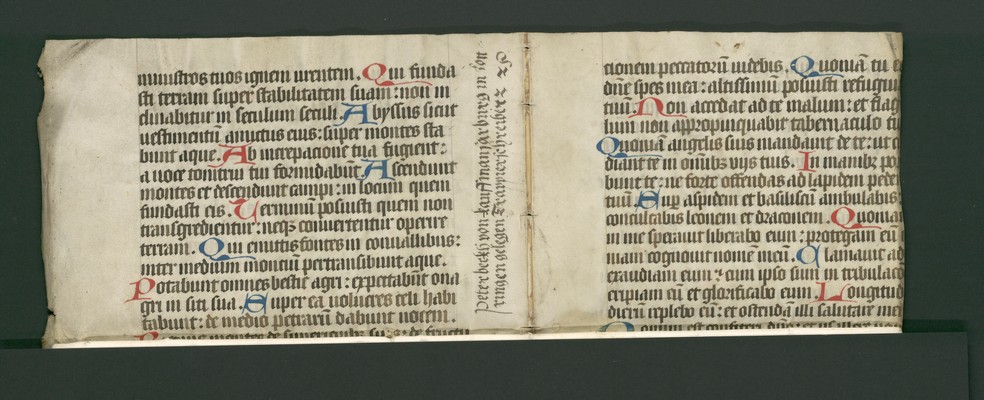 ministros tuos ignem urentem. Qui funda
sti terram super stabilitatem suam: non in
clinabitur in seculum seculi. Abyssus sicut
vestimentum amictus eius: super montes sta
bunt aque. Ab increpacione tua fugient:
a voce tonitrui tui formidabūt. Ascendunt
montes et descendunt campi: in locum quem
fundasti eis. Terminum posuisti quem non
transgredientur: neqz convertentur operire
terram. Qui emittis fontes in convallibus:
inter medium moncium pertransibunt aque.
Potabunt omnes bestie agri: expectabūt ona
gri in siti sua. Super ea volucres celi habi
tabunt: de medio petrarum dabunt vocem.
montes de superioribz suis: de fructu
von kauffman
cionem peccatorū videbis. Quoniam tu e
dn̄e spes mea: altissimum posuisti refugiū
tuū. Non accedat ad te malum: et flag
lum non appropinquabit tabernaculo tu
Quoniā angelis suis mandavit de te: ut c
diant te in omībz vijs tuis. In manibz por
bunt te: ne forte offendas ad lapidem pede
tuū. Supz aspidem et basiliscū ambulabis
conculcabis leonem et draconem. Quonia
in me speravit liberabo eum: protegam eū
niam cognovit nomē meū. Clamavit ad
exaudiam eum cum ipso sum in tribulacō
eripiam eū et glorificabo eum. Longitud
dierū replebo eū: et ostendā illi salutare me
Bonum est confiteri dn̄o: et psallere